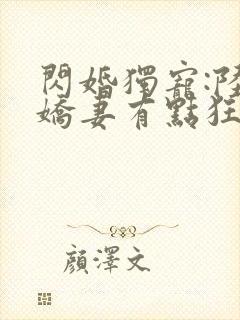 閃婚獨寵:陸
嬌妻有點狂
顏澤文